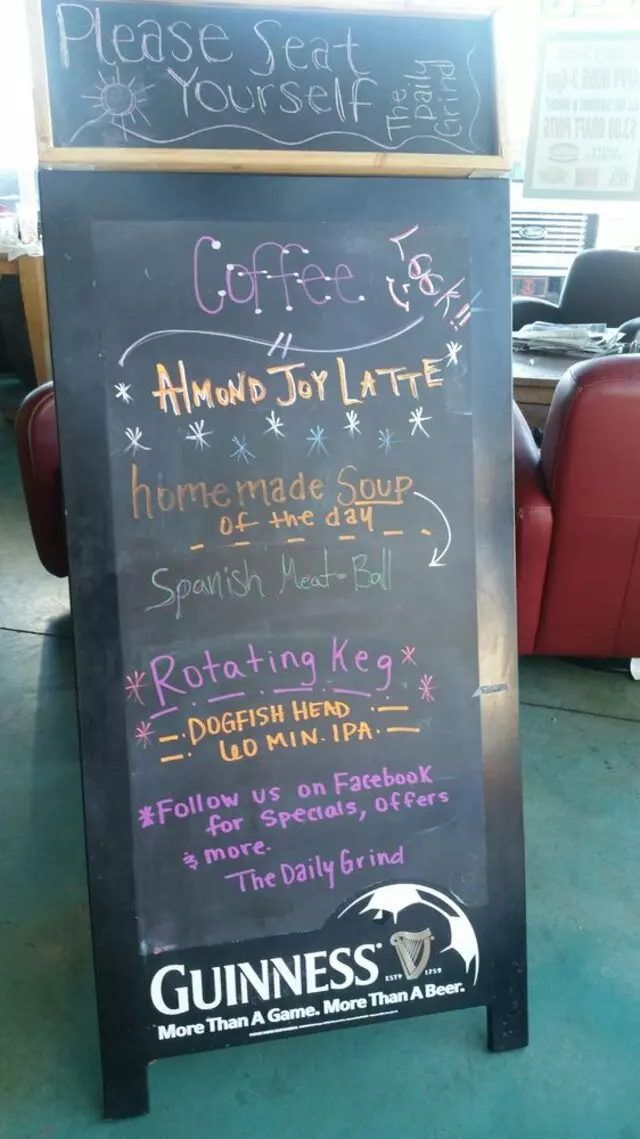 Please Seat
Yourself
The
Daily
Grind
Coffee
Look!!
ALMOND JOY LATTE
homemade Soup
of the day
Spanish Meat-Ball
Rotating Keg
DOGFISH HEAD
60 MIN. IPA.
*Follow us on Facebook
for Specials, Offers
& more.
The Daily Grind
GUINNESS
ESTD 1759
More Than A Game. More Than A Beer.
Ford